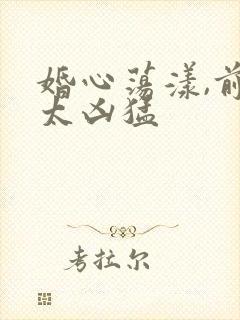 婚心荡漾,前
太凶猛
考拉尔